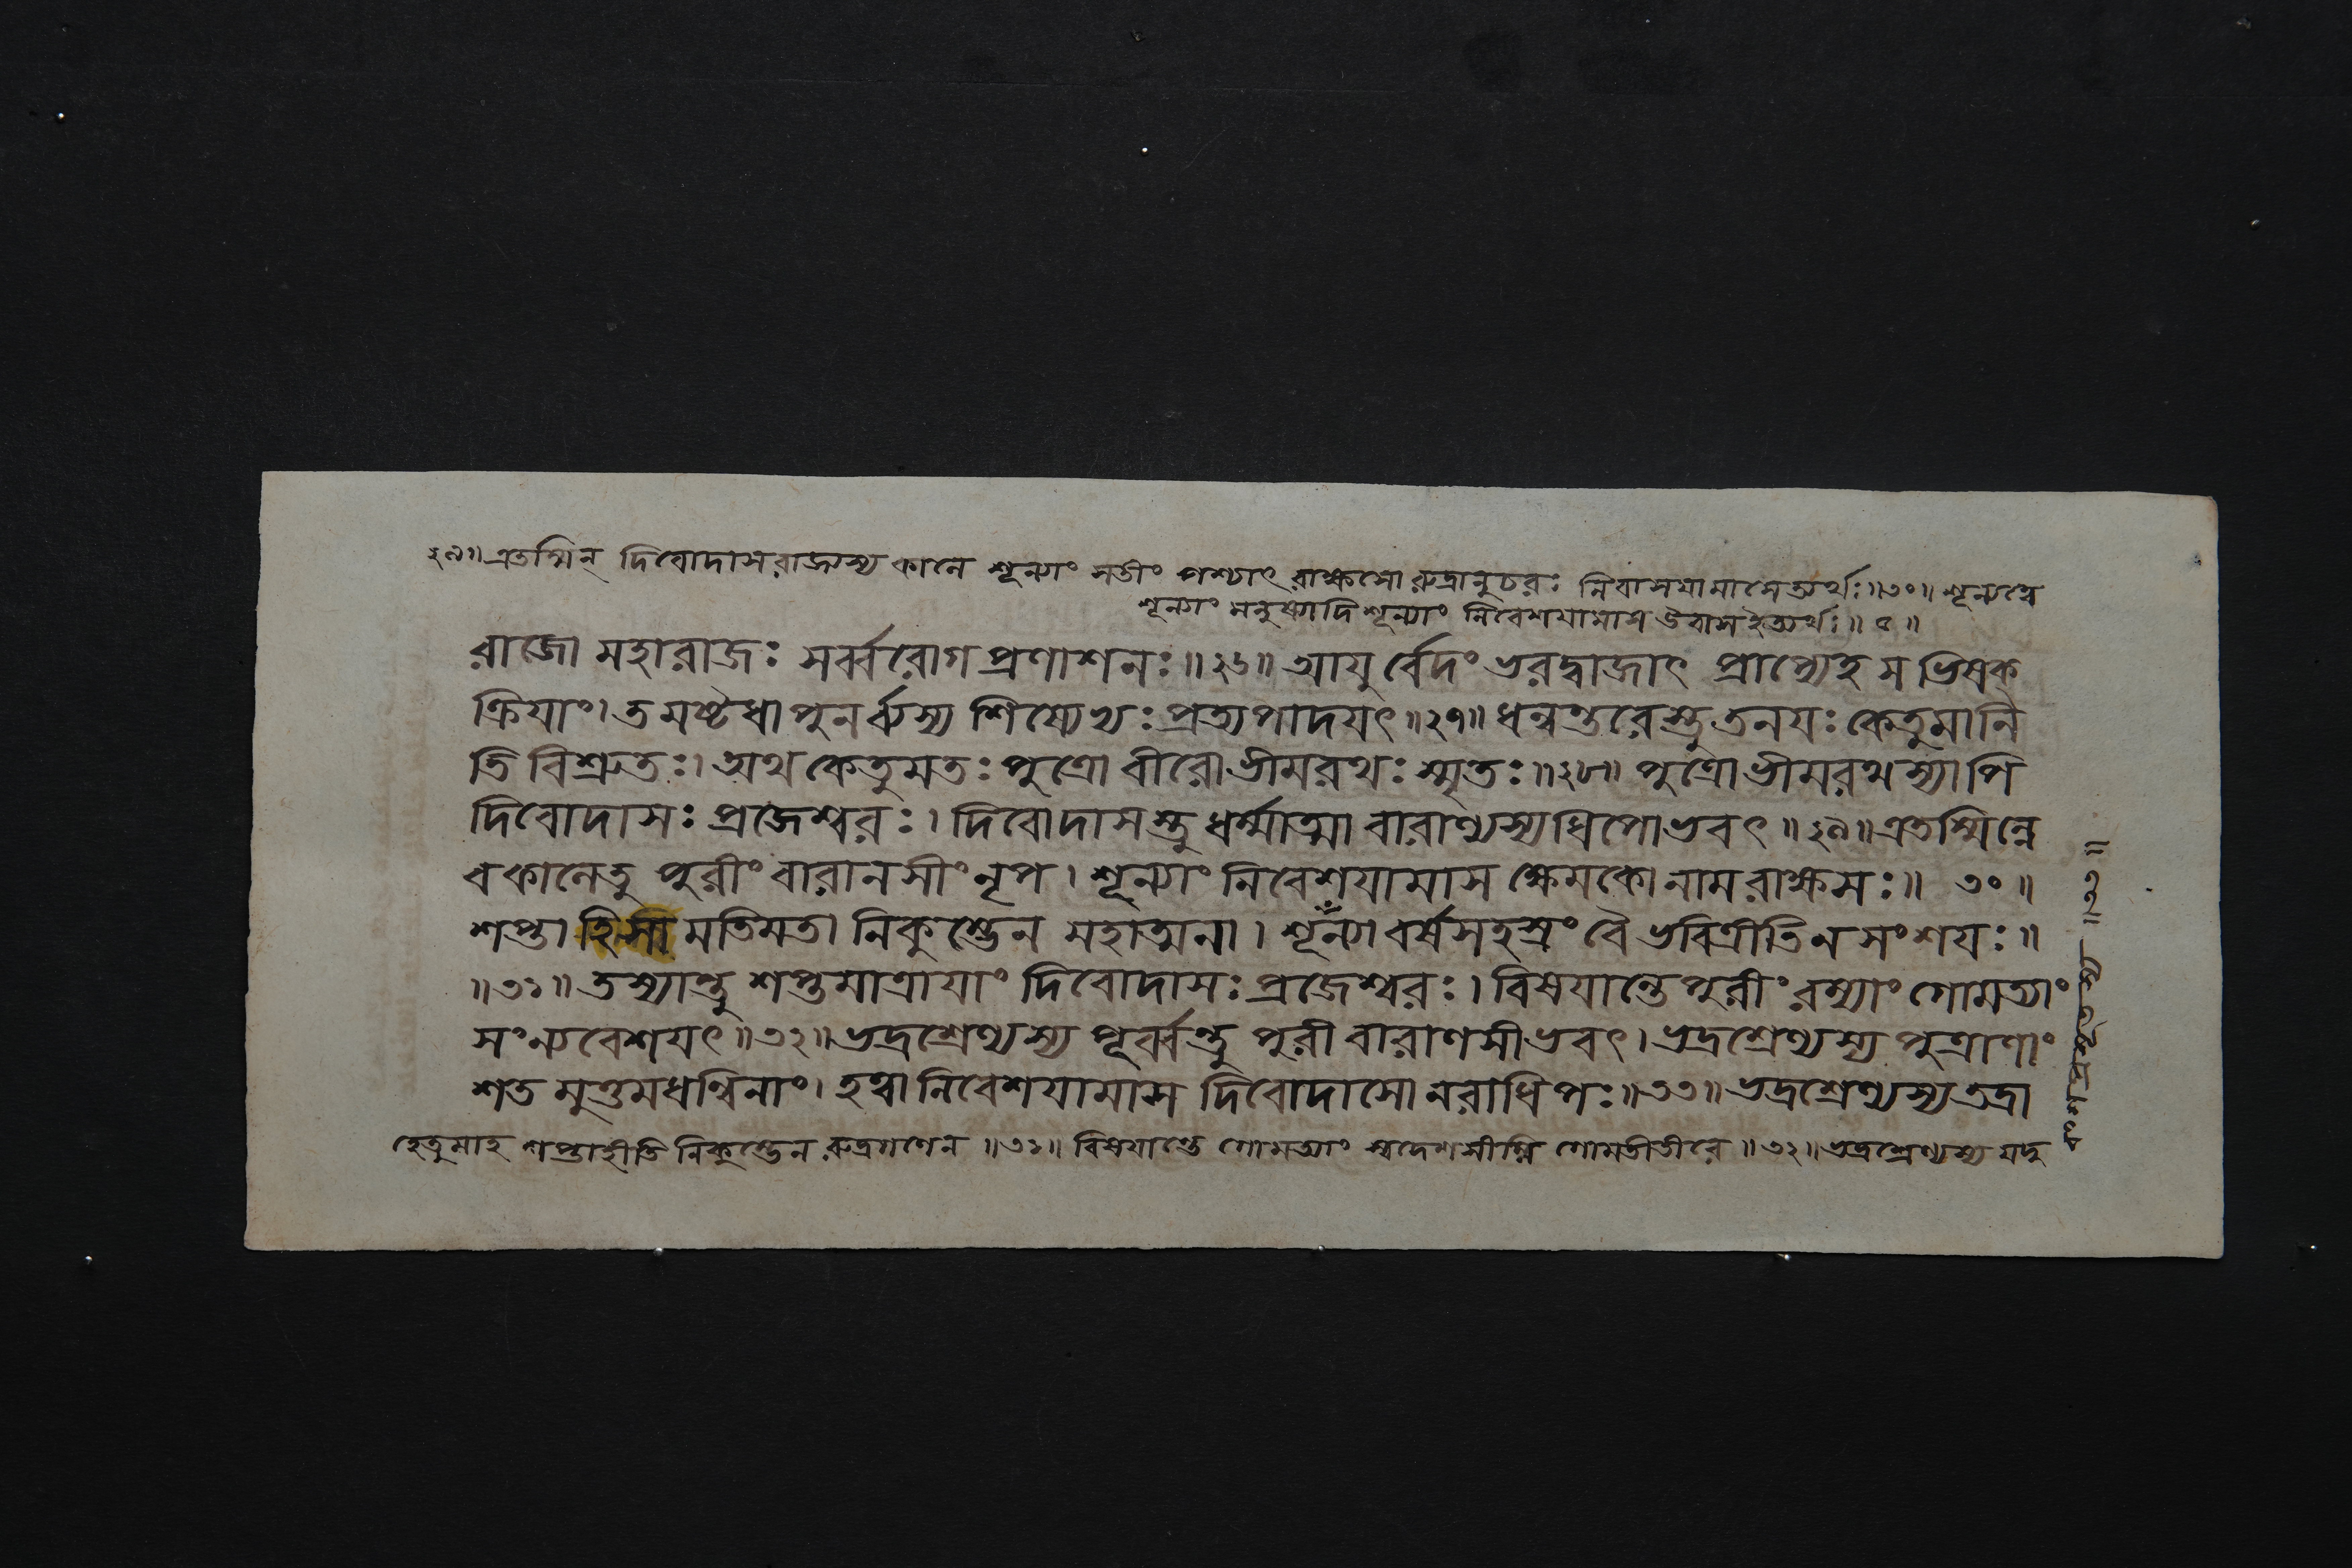 ২৯॥ এতস্মিন্ দিবোদাসরাজ্যস্য কালে শূন্যাং সতীং পশ্যাৎ রাক্ষসো রুদ্রানুচরঃ নিবাসযামাসেত্যর্থঃ॥৩০॥ শূন্যত্বে
শূন্যাং মনুষ্যাদিশূন্যাং নিবেশযামাস উবাস ইত্যর্থঃ॥
রাজো মহারাজঃ সর্ব্বরোগ প্রণাশনঃ॥২৬॥ আযুর্ব্বেদং ভরদ্বাজাৎ প্রাপ্যেহ স ভিষক্
ক্রিযাং। তমষ্টধা পুনর্ব্যস্য শিষ্যেভ্যঃ প্রত্যপাদযৎ॥২৭॥ ধন্বন্তরেস্তু তনযঃ কেতুমানি
তি বিশ্রুতঃ। অথ কেতুমতঃ পুত্রো বীরো ভীমরথঃ স্মৃতঃ॥২৮॥ পুত্রো ভীমরথস্যাপি
দিবোদাসঃ প্রজেশ্বরঃ। দিবোদাসস্তু ধর্ম্মাত্মা বারাণস্যধিপোভবৎ॥২৯॥ এতস্মিন্নে
ব কালেতু পুরীং বারানসীং নৃপ। শূন্যাং নিবেশযামাস ক্ষেমকো নাম রাক্ষসঃ॥ ৩০॥
শপ্তা হি সা মতিমতা নিকুম্ভেন মহাত্মনা। শূন্যা বর্ষসহস্রং বৈ ভবিত্রীতি ন সংশযঃ॥
॥৩১॥ তস্যান্তু শপ্তমাত্রাযাং দিবোদাসঃ প্রজেশ্বরঃ। বিষযান্তে পুরীং রম্যাং গোমত্যাং
সংন্যবেশযৎ॥৩২॥ ভদ্রশ্রেণ্যস্য পূর্ব্বন্তু পুরী বারাণসীভবৎ। ভদ্রশ্রেণ্যস্য পুত্রাণাং
শতমুত্তমধন্বিনাং। হত্বা নিবেশযামাস দিবোদাসো নরাধিপঃ॥৩৩॥ ভদ্রশ্রেণ্যস্য তদ্রা
হেতুমাহ শপ্তাহীতি নিকুম্ভেন রুদ্রগণেন॥৩১॥ বিষযান্তে গোমত্যাং স্বদেশসীম্নি গোমতীতীরে॥৩২॥ ভদ্রশ্রেণ্যস্য যদু